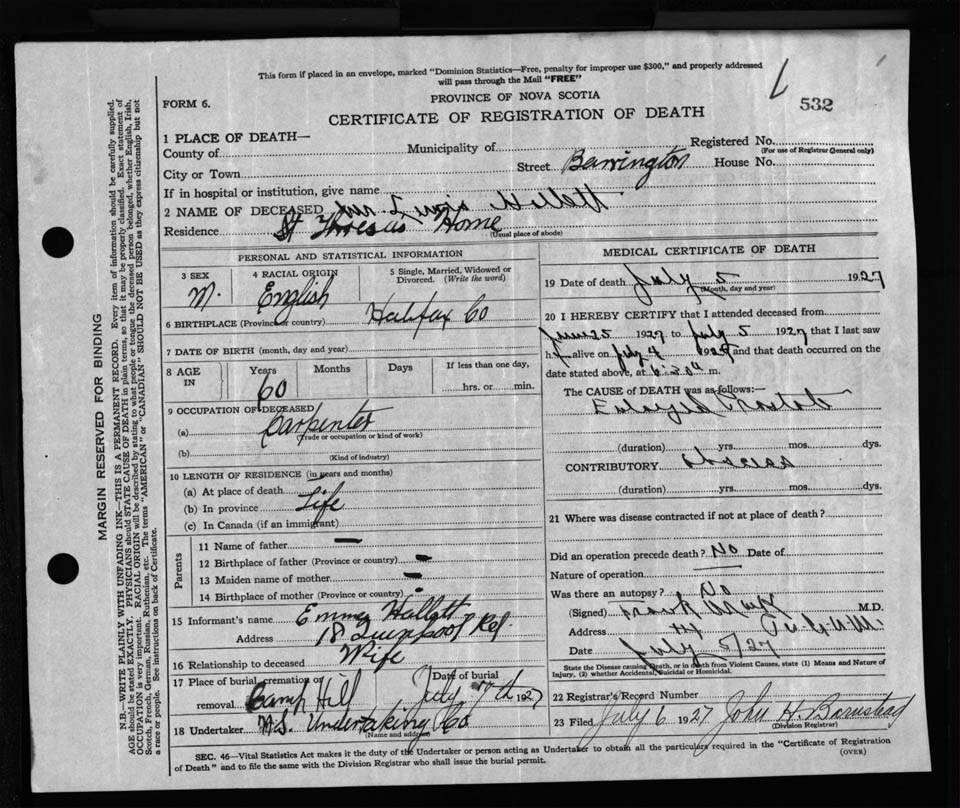 This form if placed in an envelope, marked "Dominion Statistics—Free, penalty for improper use $300," and properly addressed
will pass through the Mail "FREE"
FORM 6.
PROVINCE OF NOVA SCOTIA
532
CERTIFICATE OF REGISTRATION OF DEATH
1 PLACE OF DEATH—
County of
Municipality of
Registered No.
(For use of Registrar General only)
City or Town
Street Barrington
House No.
If in hospital or institution, give name
2 NAME OF DECEASED Hallett
Residence St Home
(Usual place of abode)
PERSONAL AND STATISTICAL INFORMATION
3 SEX
M.
4 RACIAL ORIGIN
English
5 Single, Married, Widowed or
Divorced. (Write the word)
6 BIRTHPLACE (Province or country) Halifax Co
7 DATE OF BIRTH (month, day and year)
8 AGE
IN
Years
60
Months
Days
If less than one day,
hrs. or min.
9 OCCUPATION OF DECEASED
(a) Carpenter
(Trade or occupation or kind of work)
(b)
(Kind of industry)
10 LENGTH OF RESIDENCE (in years and months)
(a) At place of death
(b) In province Life
(c) In Canada (if an immigrant)
Parents
11 Name of father —
12 Birthplace of father (Province or country) —
13 Maiden name of mother —
14 Birthplace of mother (Province or country) -
15 Informant's name Emma Hallett
Address 18
16 Relationship to deceased Wife
17 Place of burial, cremation or
removal. Camp Hill
Date of burial
July 7th 1927
18 Undertaker N.S. Undertaking Co
(Name and address)
MEDICAL CERTIFICATE OF DEATH
19 Date of death July 5 1927
(Month, day and year)
20 I HEREBY CERTIFY that I attended deceased from
June 25 1927 to July 5 1927 that I last saw
h alive on July 4 192 and that death occurred on the
date stated above, at 6:30 a m.
The CAUSE of DEATH was as follows:—
Enlarged Prostate
(duration) yrs. mos. dys.
CONTRIBUTORY
(duration) yrs. mos. dys.
21 Where was disease contracted if not at place of death?
Did an operation precede death? No Date of
Nature of operation
Was there an autopsy? No
(Signed) Frank M.D.
Address
Date July 5/27
State the Disease causing Death, or in death from Violent Causes, state (1) Means and Nature of
Injury, (2) whether Accidental, Suicidal or Homicidal.
22 Registrar's Record Number
23 Filed July 6 1927 John H. Barnstead
(Division Registrar)
SEC. 46—Vital Statistics Act makes it the duty of the Undertaker or person acting as Undertaker to obtain all the particulars required in the "Certificate of Registration
of Death" and to file the same with the Division Registrar who shall issue the burial permit.
(OVER)
MARGIN RESERVED FOR BINDING
N.B.—WRITE PLAINLY WITH UNFADING INK—THIS IS A PERMANENT RECORD. Every item of information should be carefully supplied.
AGE should be stated EXACTLY. PHYSICIANS should STATE CAUSE OF DEATH in plain terms, so that it may be properly classified. Exact statement of
OCCUPATION is very important. RACIAL ORIGIN will be described by stating to what people or tongue the deceased person belonged, whether English, Irish,
Scotch, French, German, Russian, Ruthenian, etc. The terms "AMERICAN" or "CANADIAN" SHOULD NOT BE USED as they express citizenship but not
a race or people. See instructions on back of Certificate.